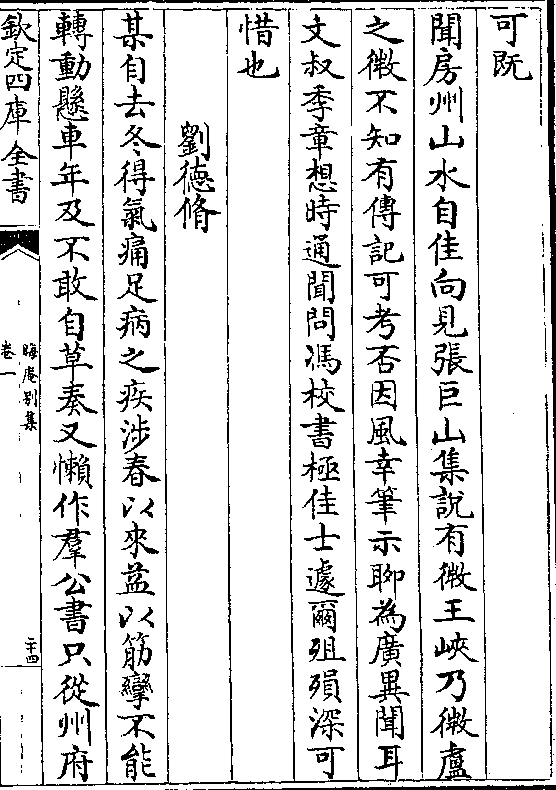 可既
聞房州山水自佳向見張巨山集説有微王峽乃微盧
之微不知有傳記可考否因風幸筆示聊為廣異聞耳
文叔季章想時通聞問馮校書極佳士遽爾殂殞深可
惜也
劉德脩
某自去冬得氣痛足病之疾涉春以來益以筋攣不能
轉動懸車年及不敢自草奏又懶作羣公書只從州府
欽定四庫全書
晦庵别集
卷一
二十四